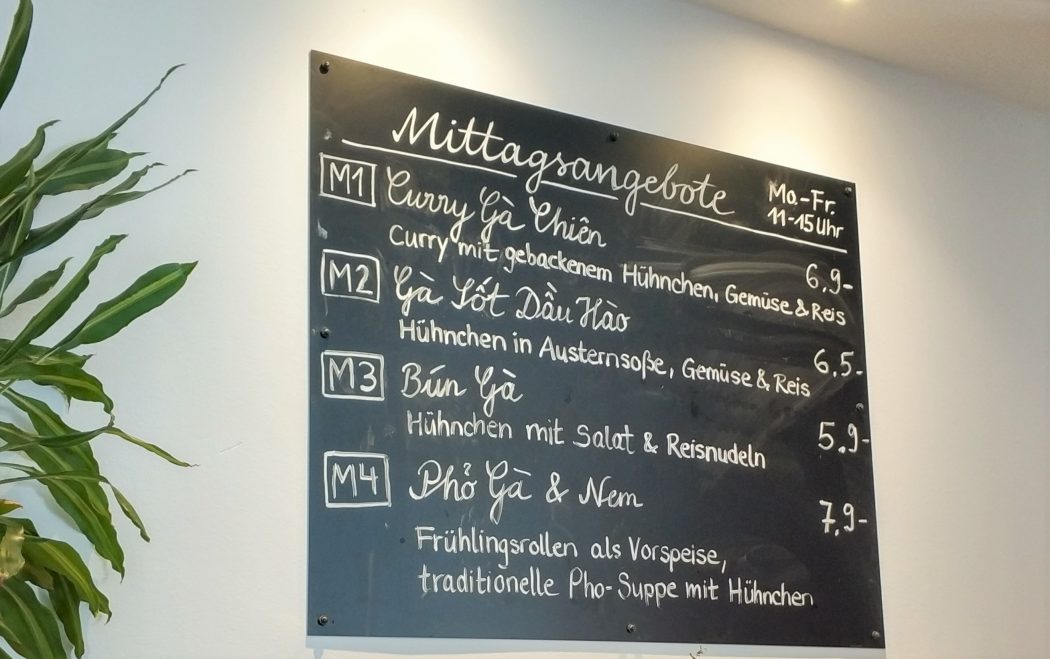 Mittagsangebote
Mo.-Fr.
11-15 Uhr
M1 Curry Gà Chiên 6,9-
Curry mit gebackenem Hühnchen, Gemüse & Reis
M2 Gà Sốt Dầu Hào 6,5-
Hühnchen in Austernsoße, Gemüse & Reis
M3 Bún Gà 5,9-
Hühnchen mit Salat & Reisnudeln
M4 Phở Gà & Nem 7,9-
Frühlingsrollen als Vorspeise,
traditionelle Pho-Suppe mit Hühnchen